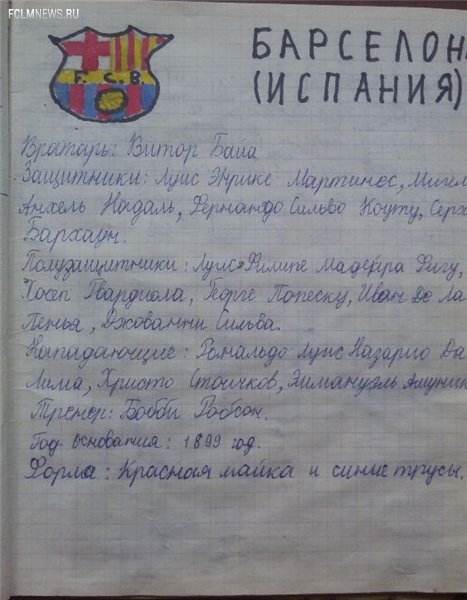 FCLMNEWS.RU
F.C.B
БАРСЕЛОН
(ИСПАНИЯ)
Вратарь: Витор Байа
Защитники: Луис Энрике Мартинес, Мигел
Анхель Надаль, Фернандо Сильво Коуту, Серх
Бархаун.
Полузащитники: Луис Филипе Мадейра Фигу,
Хосеп Гвардиола, Георге Попеску, Иван Де Ла
Пенья, Джованни Сильва.
Нападающие: Роналдо Луис Назарио Да
Лима, Христо Стоичков, Эммануэль Амуник
Тренер: Бобби Робсон.
Год основания: 1899 год.
Форма: Красная майка и синие трусы.